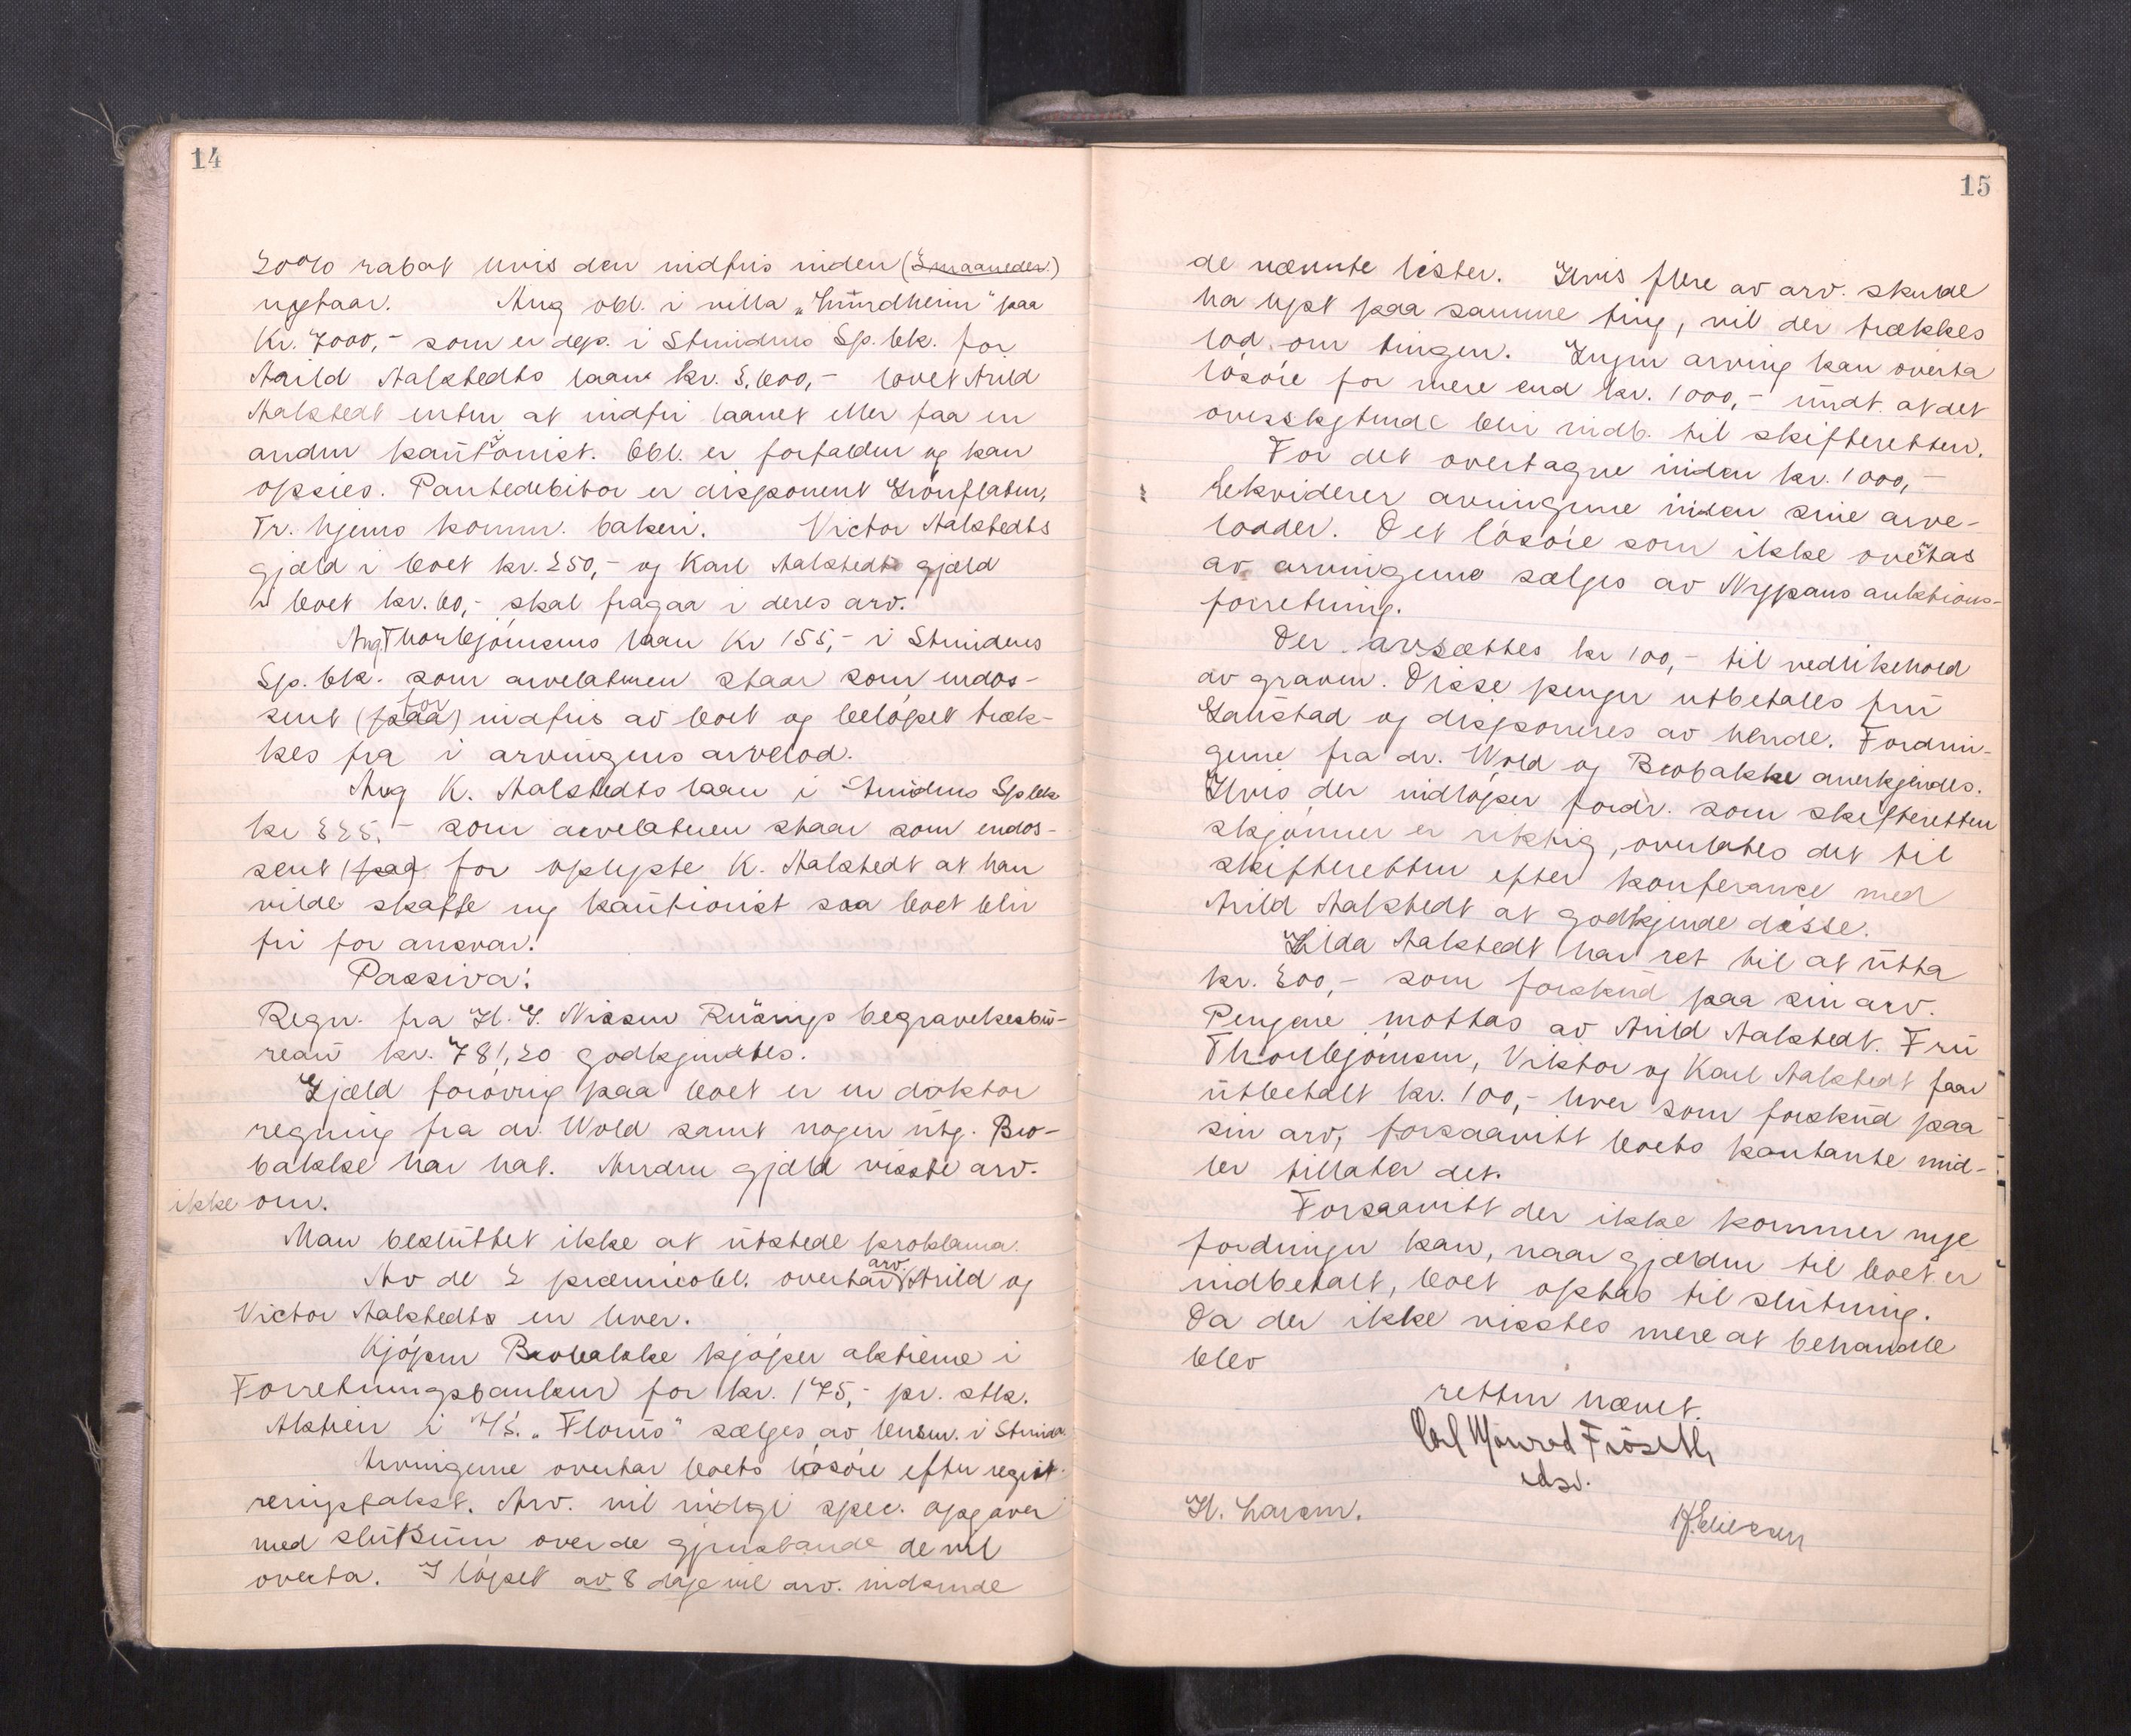 14
20% rabat hvis den indfris inden (2 maaneder)
nyttaar. Ang obl. i villa "Lundheim" paa
Kr. 7000,- som er dep. i Strindens Sp. bk. for
Arild Aalstedts laan kr. 3.600,- lovet Arild
Aalstedt enten at indfri laanet eller faa en
anden kautionist. Obl. er forfalden og kan
opsies. Pantedebitor er disponent Grönflaten,
Tr. hjems komm. bakeri. Victor Aalstedts
gjæld i boet kr. 250,- og Karl Aalstedts gjæld
i boet kr. 60,- skal fragaa i deres arv.
Ang. Thorbjörnsens laan kr 155,- i Strindens
Sp. bk. som arvelateren staar som endos-
sent (paa) for indfris av boet og belöpet træk-
kes fra i arvingens arvelod.
Ang K. Aalstedts laan i Strindens Sp bk
kr 325,- som arvelateren staar som endos-
sent (paa) for oplyste K. Aalstedt at han
vilde skaffe ny kautionist saa boet blir
fri for ansvar.
Passiva:
Regn. fra H. G. Nissen Rüsings begravelsesbü-
reau kr. 781,20 godkjendtes.
Gjæld forövrig paa boet er en doktor
regning fra dr. Wold samt nogen utg. Bro-
bakke har hat. Anden gjæld visste arv.
ikke om.
Man besluttet ikke at utstede proklama.
Av de 2 præmieobl. overtar arv. Arild og
Victor Aalstedts en hver.
Kjöpm Brobakke kjöper aktiene i
Forretningsbanken for kr. 175,- pr. stk.
Aktien i A/S. "Floms" sælges av lensm. i Strinda.
Arvingene overtar boets lösöre efter regist-
reringstakst. Arv. vil indgi spec. opgaver
med slutsum over de gjenstande de vil
overta. I löpet av 8 dage vil arv. indsende
15
de nævnte lister. Hvis flere av arv. skulde
ha lyst paa samme ting, vil der trækkes
lod om tingen. Ingen arving kan overta
lösöre for mere end kr. 1000,- undt. at det
overskytende blir indb. til skifteretten.
For det overtagne inden kr. 1000,-
likviderer arvingene inden sine arve-
lodder. Det lösöre som ikke overtas
av arvingene sælges av Nypans auktions-
forretning.
Der avsættes kr 100,- til vedlikehold
av graven. Disse penger utbetales fru
Laustad og disponeres av hende. Fordrin-
gene fra dr. Wold og Brobakke anerkjendes.
Hvis der indlöper fordr. som skifteretten
skjönner er riktig, overlates det til
skifteretten efter konferance med
Arild Aalstedt at godkjende disse.
Hilda Aalstedt har ret til at utta
kr. 300,- som forskud paa sin arv.
Pengene mottas av Arild Aalstedt. Fru
Thorbjörnsen, Viktor og Karl Aalstedt faar
utbetalt kr. 100,- hver som forskud paa
sin arv, forsaavitt boets kontante mid-
ler tillater det.
Forsaavitt der ikke kommer nye
fordringer kan, naar gjælden til boet er
indbetalt, boet optas til slutning.
Da der ikke visstes mere at behandle
blev
retten hævet.
Carl Monrad Fröseth
edsv.
H. Larsen. Eliesen